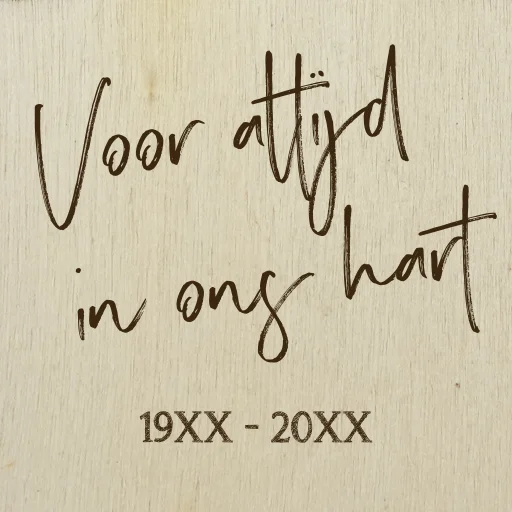 Voor altijd
in ons hart
19XX - 20XX